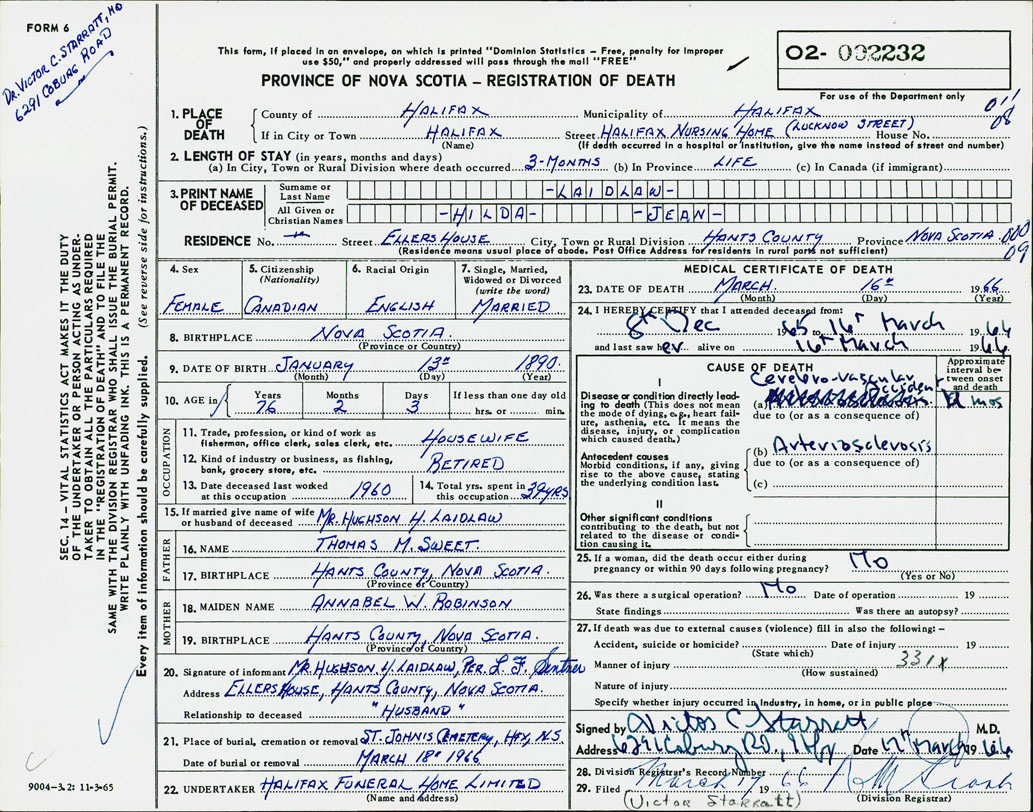 FORM 6
DR. VICTOR C. STARRATT, MD
6291 COBURG ROAD
This form, if placed in an envelope, on which is printed "Dominion Statistics – Free, penalty for improper
use $50," and properly addressed will pass through the mail "FREE"
PROVINCE OF NOVA SCOTIA – REGISTRATION OF DEATH
02- 002232
For use of the Department only
011
08
1. PLACE OF DEATH
County of HALIFAX Municipality of HALIFAX
If in City or Town HALIFAX Street HALIFAX NURSING HOME (LUCKNOW STREET) House No.
(Name) (If death occurred in a hospital or institution, give the name instead of street and number)
2. LENGTH OF STAY (in years, months and days)
(a) In City, Town or Rural Division where death occurred 3-MONTHS (b) In Province LIFE (c) In Canada (if immigrant)
3. PRINT NAME OF DECEASED
Surname or Last Name -LAIDLAW-
All Given or Christian Names -HILDA- -JEAN-
RESIDENCE No. — Street ELLERSHOUSE City, Town or Rural Division HANTS COUNTY Province NOVA SCOTIA 000
09
(Residence means usual place of abode. Post Office Address for residents in rural parts not sufficient)
SEC. 14 – VITAL STATISTICS ACT MAKES IT THE DUTY
OF THE UNDERTAKER OR PERSON ACTING AS UNDER-
TAKER TO OBTAIN ALL THE PARTICULARS REQUIRED
IN THE "REGISTRATION OF DEATH" AND TO FILE THE
SAME WITH THE DIVISION REGISTRAR WHO SHALL ISSUE THE BURIAL PERMIT.
WRITE PLAINLY WITH UNFADING INK. THIS IS A PERMANENT RECORD.
Every item of information should be carefully supplied. (See reverse side for instructions.)
4. Sex
FEMALE
5. Citizenship
(Nationality)
CANADIAN
6. Racial Origin
ENGLISH
7. Single, Married,
Widowed or Divorced
(write the word)
MARRIED
8. BIRTHPLACE NOVA SCOTIA.
(Province or Country)
9. DATE OF BIRTH JANUARY 13th 1890.
(Month) (Day) (Year)
10. AGE in
Years Months Days If less than one day old
76 2 3 hrs. or min.
OCCUPATION
11. Trade, profession, or kind of work as
fisherman, office clerk, sales clerk, etc. HOUSEWIFE
12. Kind of industry or business, as fishing,
bank, grocery store, etc. RETIRED
13. Date deceased last worked
at this occupation 1960
14. Total yrs. spent in
this occupation 39YRS
15. If married give name of wife
or husband of deceased MR. HUGHSON H. LAIDLAW
FATHER
16. NAME THOMAS M. SWEET.
17. BIRTHPLACE HANTS COUNTY, NOVA SCOTIA.
(Province or Country)
MOTHER
18. MAIDEN NAME ANNABEL W. ROBINSON
19. BIRTHPLACE HANTS COUNTY, NOVA SCOTIA.
(Province of Country)
20. Signature of informant MR. HUGHSON H. LAIDLAW, PER. L. F.
Address ELLERSHOUSE, HANTS COUNTY, NOVA SCOTIA.
Relationship to deceased "HUSBAND"
21. Place of burial, cremation or removal ST. JOHN'S CEMETERY, HFX, N.S
Date of burial or removal MARCH 18th 1966
22. UNDERTAKER HALIFAX FUNERAL HOME LIMITED
(Name and address)
9004-3.2: 11-3-65
MEDICAL CERTIFICATE OF DEATH
23. DATE OF DEATH MARCH 16th 1966
(Month) (Day) (Year)
24. I HEREBY CERTIFY that I attended deceased from:
8th Dec 1965 to 16th March 1966
and last saw her alive on 16th March 1966
CAUSE OF DEATH
Approximate
interval be-
tween onset
and death
I
Disease or condition directly lead-
ing to death (This does not mean
the mode of dying, e.g., heart fail-
ure, asthenia, etc. It means the
disease, injury, or complication
which caused death.)
Cerebro-vascular
(a) accident mos
due to (or as a consequence of)
Antecedent causes
Morbid conditions, if any, giving
rise to the above cause, stating
the underlying condition last.
(b) Arteriosclerosis
due to (or as a consequence of)
(c)
II
Other significant conditions
contributing to the death, but not
related to the disease or condi-
tion causing it.
25. If a woman, did the death occur either during
pregnancy or within 90 days following pregnancy? No
(Yes or No)
26. Was there a surgical operation? No Date of operation 19
State findings Was there an autopsy?
27. If death was due to external causes (violence) fill in also the following:–
Accident, suicide or homicide? Date of injury 19
(State which)
Manner of injury 331X
(How sustained)
Nature of injury
Specify whether injury occurred in Industry, in home, or in public place
Signed by Victor C Starratt M.D.
Address 6291 Coburg Rd., Hfx Date 17th March 1966
28. Division Registrar's Record Number
29. Filed March 17 1966
(Division Registrar)
(Victor Starratt)